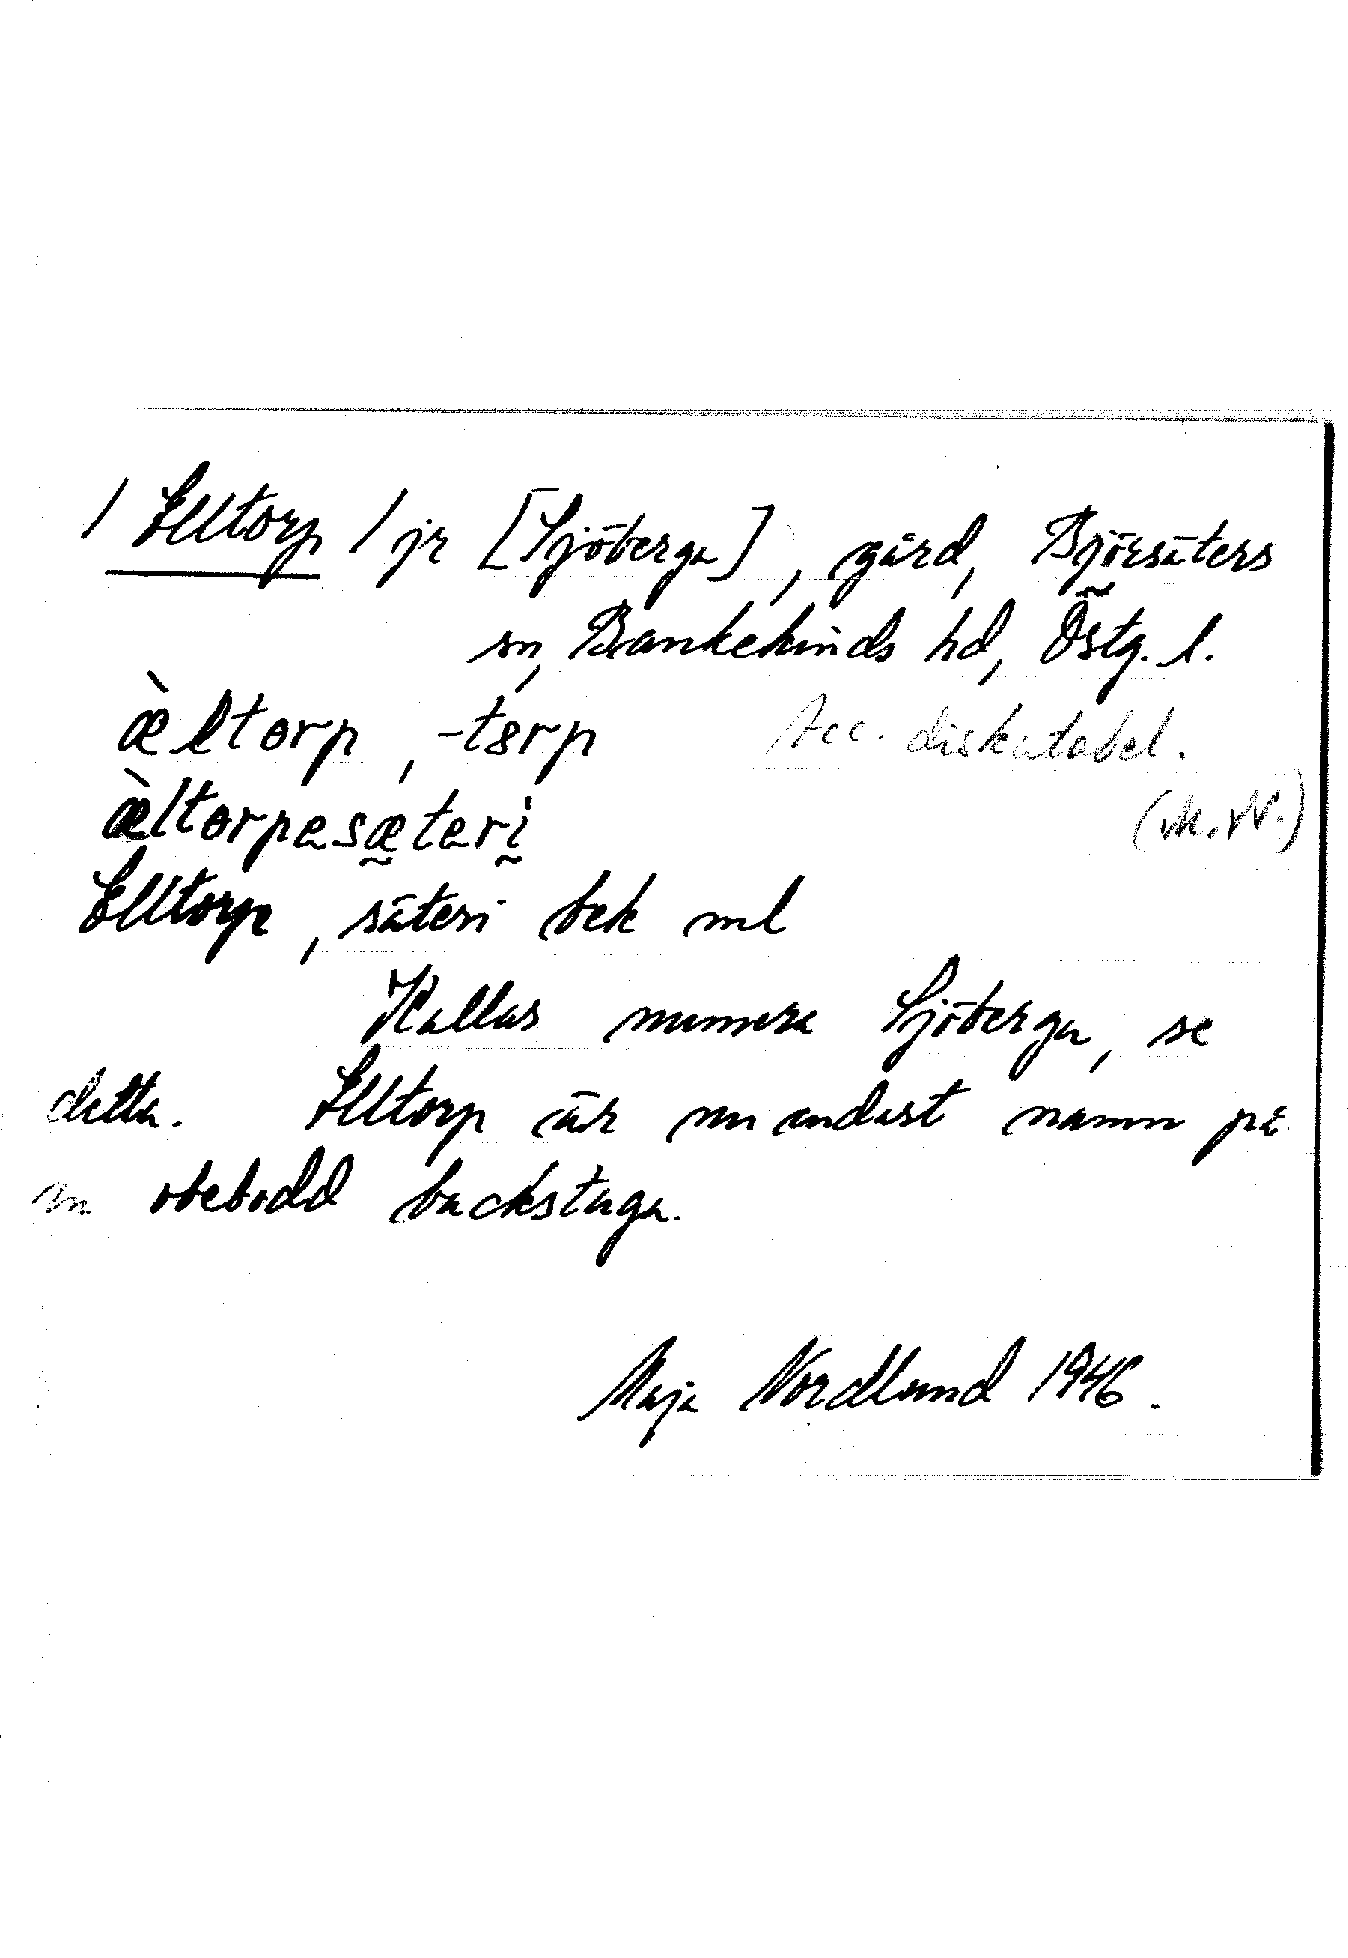 / Elltorp / jr [Sjöberga], gård, Björsäters
sn, Bankekinds hd, Östg. l.
æ̀ltorp, -tɵrp Acc. diskutabel.
æ̀ltɵrpəsæ̰tərḭ (M. N.)
Elltorp, säteri bek ml
Kallas numera Sjöberga, se
detta. Elltorp är nu endast namn på
en obebodd backstuga.
Maja Nordlund 1946.